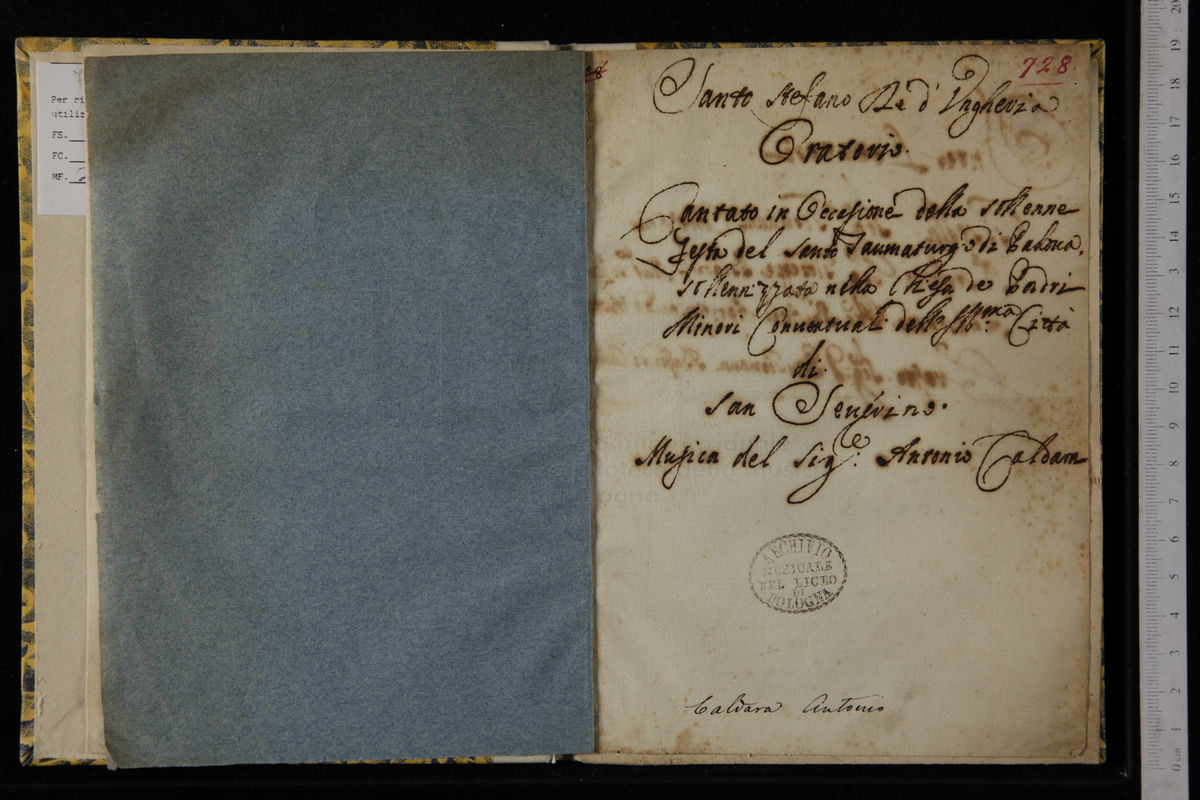 Per ri
utiliz
FS.
FC.
MF. 2
728
Santo Stefano Re d'Ungheria
Oratorio.
Cantato in Occasione della sollenne
Festa del Santo Taumaturgo di Padova,
sollennizzata nella Chiesa de Padri
Minori Conventuali dell'Ill:ma Città
di
San Severino.
Musica del Sig:e Antonio Caldara
ARCHIVIO
MUSICALE
NEL LICEO
DI
BOLOGNA
Caldara Antonio
0 cm 1 2 3 4 5 6 7 8 9 10 11 12 13 14 15 16 17 18 19 20